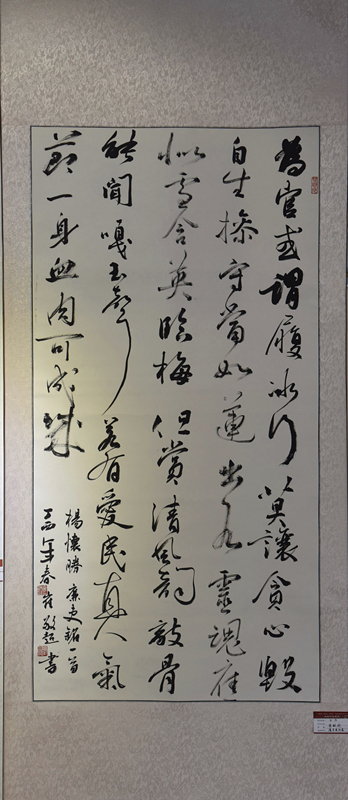 為官或謂履冰行莫讓貪心毀
自生操守當如蓮出水靈魂應
似雪含英臨梅但賞清風韻敲骨
能聞嘎玉聲若有愛民真氣
節一身血肉可成城
楊懷勝廉吏銘一首
丁酉年春崔敬超書